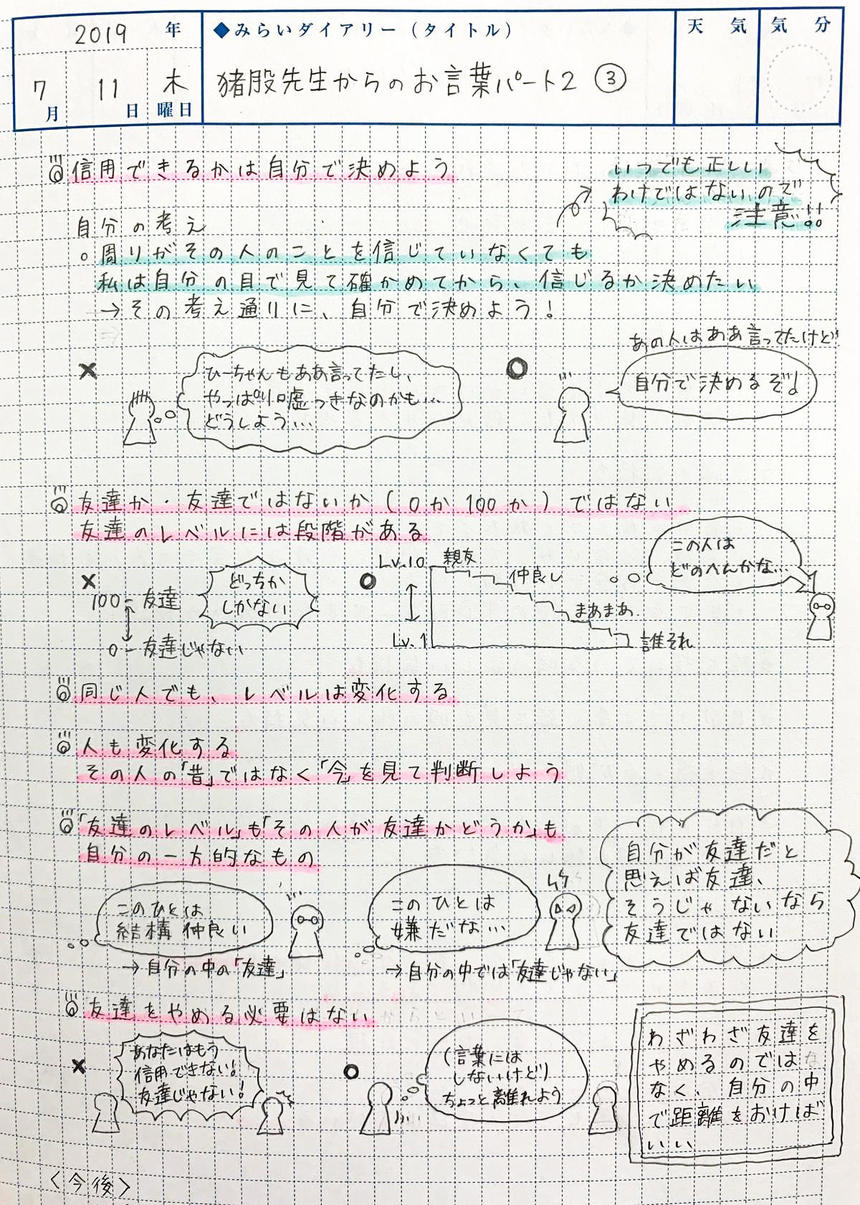 2019 年
7月 11日 木曜日
◆みらいダイアリー（タイトル）
猪股先生からのお言葉パート2 ③
天気
気分
信用できるかは自分で決めよう
いつでも正しい
わけではないのぞ
注意!!
自分の考え
○周りがその人のことを信じていなくても
私は自分の目で見て確かめてから、信じるか決めたい
→その考え通りに、自分で決めよう！
×
ひーちゃんもああ言ってたし、
やっぱり嘘つきなのかも…
どうしよう…
○
あの人はああ言ってたけど
自分で決めるぞ♪
友達か・友達ではないか（0か100か）ではない
友達のレベルには段階がある
×
100 － 友達
0 － 友達じゃない
どっちか
しかない
○
Lv.10
Lv.1
親友
仲良し
まあまあ
誰それ
この人は
どのへんかな…
同じ人でも、レベルは変化する
人も変化する
その人の「昔」ではなく「今」を見て判断しよう
「友達のレベル」も「その人が友達かどうか」も
自分の一方的なもの
このひとは
結構仲良い
→自分の中の「友達」
このひとは
嫌だな…
→自分の中では「友達じゃない」
自分が友達だと
思えば友達、
そうじゃないなら
友達ではない
友達をやめる必要はない
×
あなたはもう
信用できない！
友達じゃない！
○
（言葉には
しないけど）
ちょっと離れよう
わざわざ友達を
やめるのでは
なく、自分の中
で距離をおけば
いい
＜今後＞